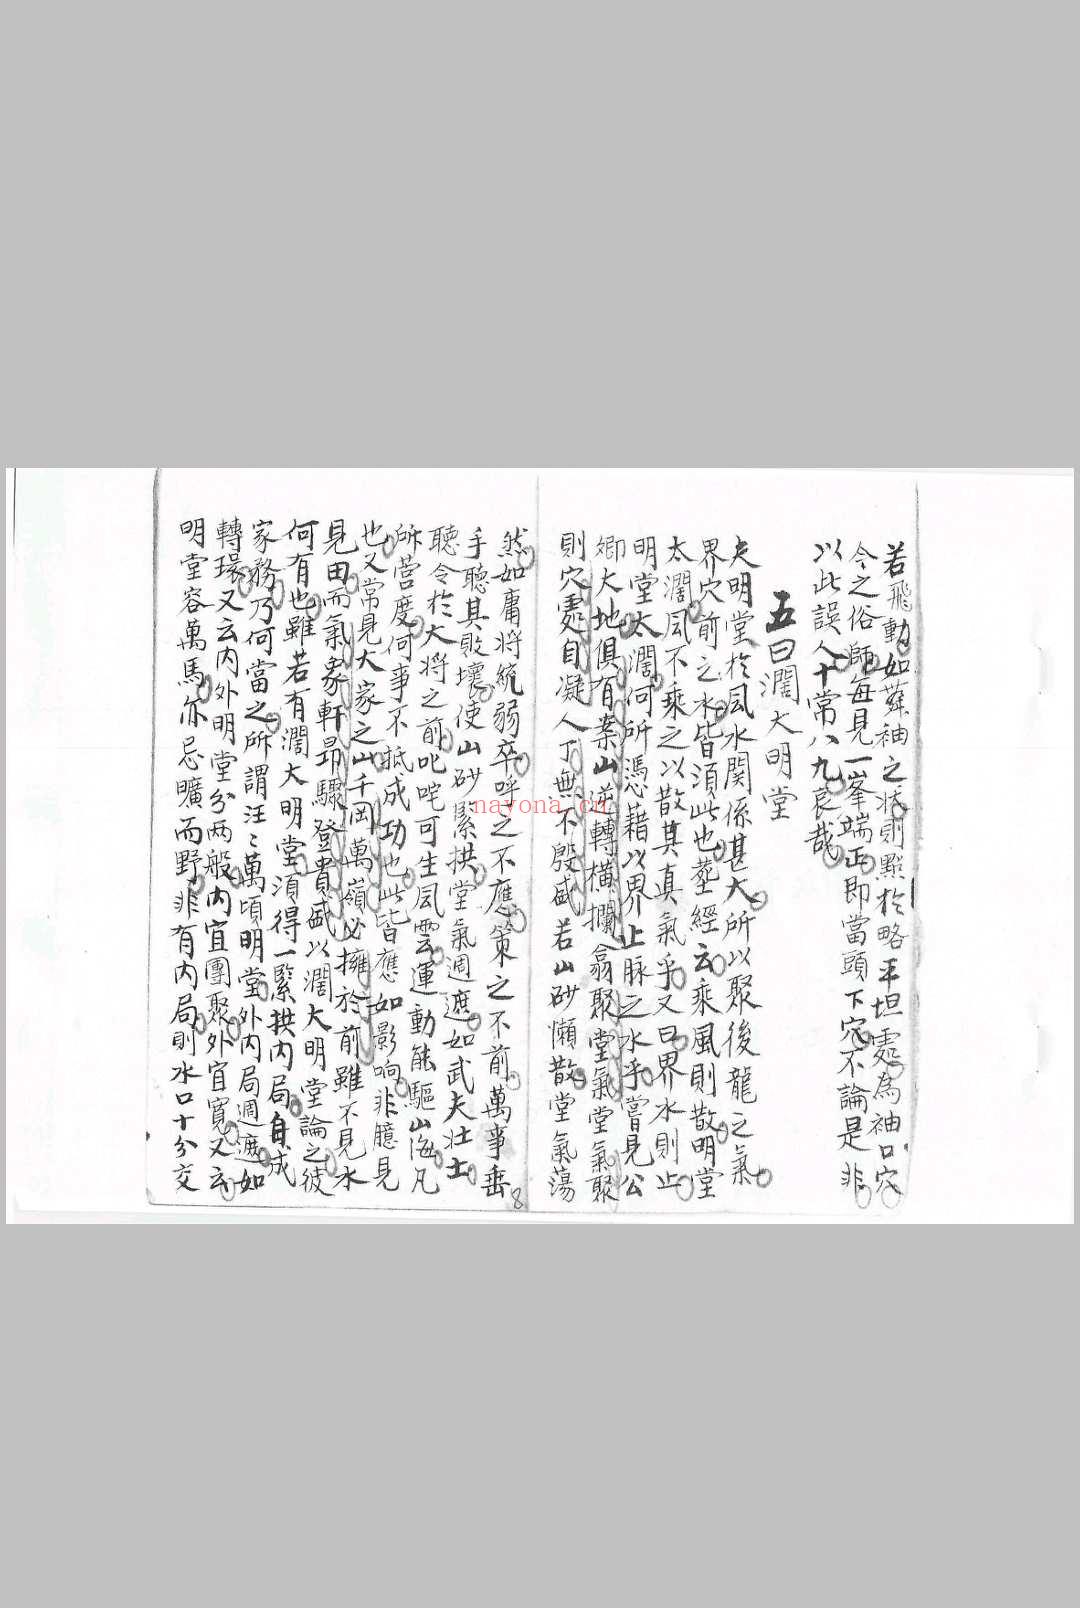 若飛動如舞袖之狀則點於略平坦處為袖口穴
今之俗師每見一峯端正即當頭下穴不論是非
以此誤人十常八九哀哉
五曰濶大明堂
夫明堂於風水関係甚大所以聚後龍之氣
界穴前之水皆湏此也塟經云乘風則散明堂
太濶風不乘之以散其真氣乎又曰界水則止
明堂太濶何所憑藉以界止脉之水乎嘗見公
卿大地俱有案山逆轉横攔翕聚堂氣堂氣聚
則穴處自凝人丁無不殷盛若山砂懶散堂氣蕩
然如庸将統弱卒呼之不應策之不前萬事垂
手聽其敗壞使山砂緊拱堂氣週遮如武夫壮士
聽令於大将之前叱咤可生風雲運動能驅山海凡
所营度何事不抵成功也此皆應如影响非臆見
也又常見大家之山千岡萬嶺必擁於前雖不見水
見田而氣象軒昂驟登貴盛以濶大明堂論之彼
何有也雖若有濶大明堂湏得一緊拱内局自成
家務乃何當之所謂汪〻萬頃明堂外内局週遮如
轉環又云内外明堂分两般内宜團聚外宜寛又云
明堂容萬馬亦忌曠而野非有内局則水口十分交
8
nayona.cn